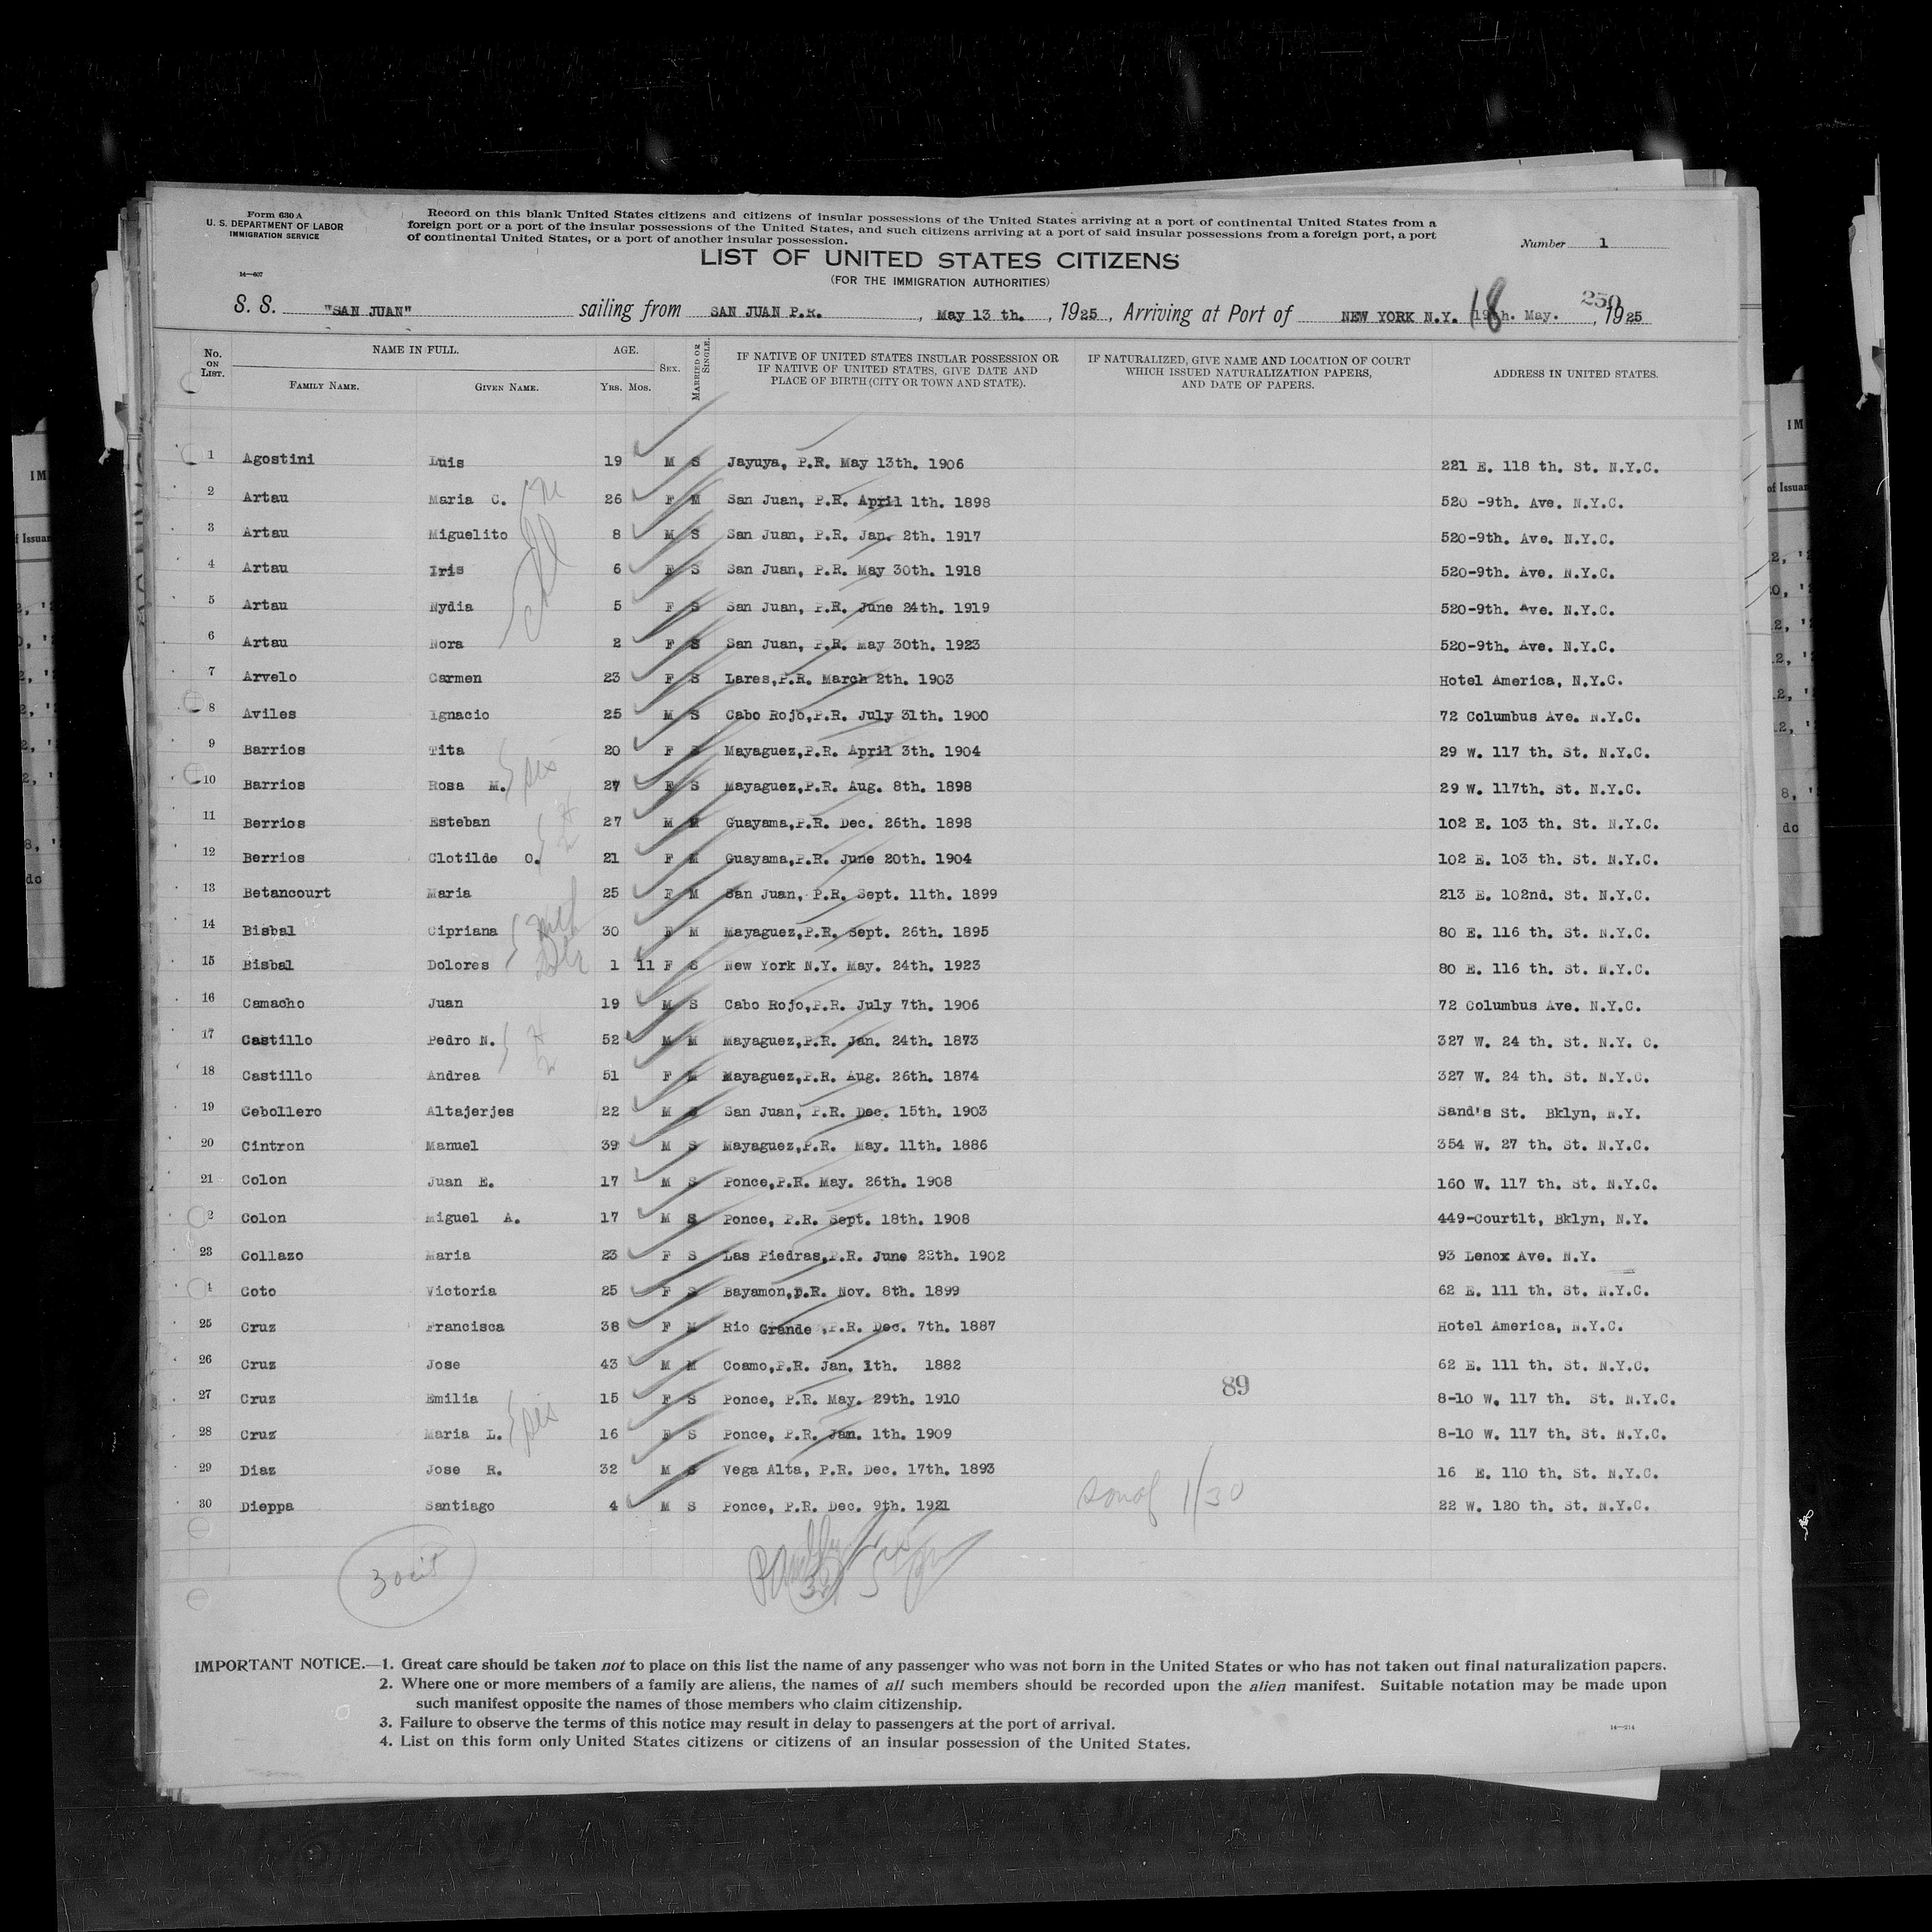 Form 630 A
U. S. DEPARTMENT OF LABOR
IMMIGRATION SERVICE
14—607
Record on this blank United States citizens and citizens of insular possessions of the United States arriving at a port of continental United States from a
foreign port or a port of the insular possessions of the United States, and such citizens arriving at a port of said insular possessions from a foreign port, a port
of continental United States, or a port of another insular possession.
Number 1
LIST OF UNITED STATES CITIZENS
(FOR THE IMMIGRATION AUTHORITIES)
250
S. S. "SAN JUAN" sailing from SAN JUAN P.R. , May 13 th. , 1925 , Arriving at Port of NEW YORK N.Y. 18 th. May. , 1925
No. ON LIST. NAME IN FULL. FAMILY NAME. GIVEN NAME. AGE. YRS. MOS. SEX. MARRIED OR SINGLE. IF NATIVE OF UNITED STATES INSULAR POSSESSION OR IF NATIVE OF UNITED STATES, GIVE DATE AND PLACE OF BIRTH (CITY OR TOWN AND STATE). IF NATURALIZED, GIVE NAME AND LOCATION OF COURT WHICH ISSUED NATURALIZATION PAPERS, AND DATE OF PAPERS. ADDRESS IN UNITED STATES.
1 Agostini Luis 19 M S Jayuya, P.R. May 13th. 1906 221 E. 118 th. St. N.Y.C.
2 Artau Maria C. 26 F M San Juan, P.R. April 1th. 1898 520 -9th. Ave. N.Y.C.
3 Artau Miguelito 8 M S San Juan, P.R. Jan. 2th. 1917 520-9th. Ave. N.Y.C.
4 Artau Iris 6 F S San Juan, P.R. May 30th. 1918 520-9th. Ave. N.Y.C.
5 Artau Nydia 5 F S San Juan, P.R. June 24th. 1919 520-9th. Ave. N.Y.C.
6 Artau Nora 2 F S San Juan, P.R. May 30th. 1923 520-9th. Ave. N.Y.C.
7 Arvelo Carmen 23 F S Lares,P.R. March 2th. 1903 Hotel America, N.Y.C.
8 Aviles Ignacio 25 M S Cabo Rojo,P.R. July 31th. 1900 72 Columbus Ave. N.Y.C.
9 Barrios Tita 20 F S Mayaguez,P.R. April 3th. 1904 29 W. 117 th. St. N.Y.C.
10 Barrios Rosa M. 27 F S Mayaguez,P.R. Aug. 8th. 1898 29 W. 117th. St. N.Y.C.
11 Berrios Esteban 27 M M Guayama,P.R. Dec. 26th. 1898 102 E. 103 th. St. N.Y.C.
12 Berrios Clotilde O. 21 F M Guayama,P.R. June 20th. 1904 102 E. 103 th. St. N.Y.C.
13 Betancourt Maria 25 F M San Juan, P.R. Sept. 11th. 1899 213 E. 102nd. St. N.Y.C.
14 Bisbal Cipriana 30 F M Mayaguez,P.R. Sept. 26th. 1895 80 E. 116 th. St. N.Y.C.
15 Bisbal Dolores 1 11 F S New York N.Y. May. 24th. 1923 80 E. 116 th. St. N.Y.C.
16 Camacho Juan 19 M S Cabo Rojo,P.R. July 7th. 1906 72 Columbus Ave. N.Y.C.
17 Castillo Pedro N. 52 M M Mayaguez,P.R. Jan. 24th. 1873 327 W. 24 th. St. N.Y. C.
18 Castillo Andrea 51 F M Mayaguez,P.R. Aug. 26th. 1874 327 W. 24 th. St. N.Y.C.
19 Cebollero Altajerjes 22 M S San Juan, P.R. Dec. 15th. 1903 Sand's St. Bklyn, N.Y.
20 Cintron Manuel 39 M S Mayaguez,P.R. May. 11th. 1886 354 W. 27 th. St. N.Y.C.
21 Colon Juan E. 17 M S Ponce,P.R. May. 26th. 1908 160 W. 117 th. St. N.Y.C.
2 Colon Miguel A. 17 M S Ponce, P.R. Sept. 18th. 1908 449-Courtlt, Bklyn, N.Y.
23 Collazo Maria 23 F S Las Piedras,P.R. June 22th. 1902 93 Lenox Ave. N.Y.
4 Coto Victoria 25 F S Bayamon,P.R. Nov. 8th. 1899 62 E. 111 th. St. N.Y.C.
25 Cruz Francisca 38 F M Rio Grande ,P.R. Dec. 7th. 1887 Hotel America, N.Y.C.
26 Cruz Jose 43 M M Coamo,P.R. Jan. 1th. 1882 62 E. 111 th. St. N.Y.C.
89
27 Cruz Emilia 15 F S Ponce, P.R. May. 29th. 1910 8-10 W. 117 th. St. N.Y.C.
28 Cruz Maria L. 16 F S Ponce, P.R. Jan. 1th. 1909 8-10 W. 117 th. St. N.Y.C.
29 Diaz Jose R. 32 M S Vega Alta, P.R. Dec. 17th. 1893 16 E. 110 th. St. N.Y.C.
30 Dieppa Santiago 4 M S Ponce, P.R. Dec. 9th. 1921 son of 1/30 22 W. 120 th. St. N.Y.C.
30 cit
IMPORTANT NOTICE.—1. Great care should be taken not to place on this list the name of any passenger who was not born in the United States or who has not taken out final naturalization papers.
2. Where one or more members of a family are aliens, the names of all such members should be recorded upon the alien manifest. Suitable notation may be made upon
such manifest opposite the names of those members who claim citizenship.
3. Failure to observe the terms of this notice may result in delay to passengers at the port of arrival.
4. List on this form only United States citizens or citizens of an insular possession of the United States.
14—214